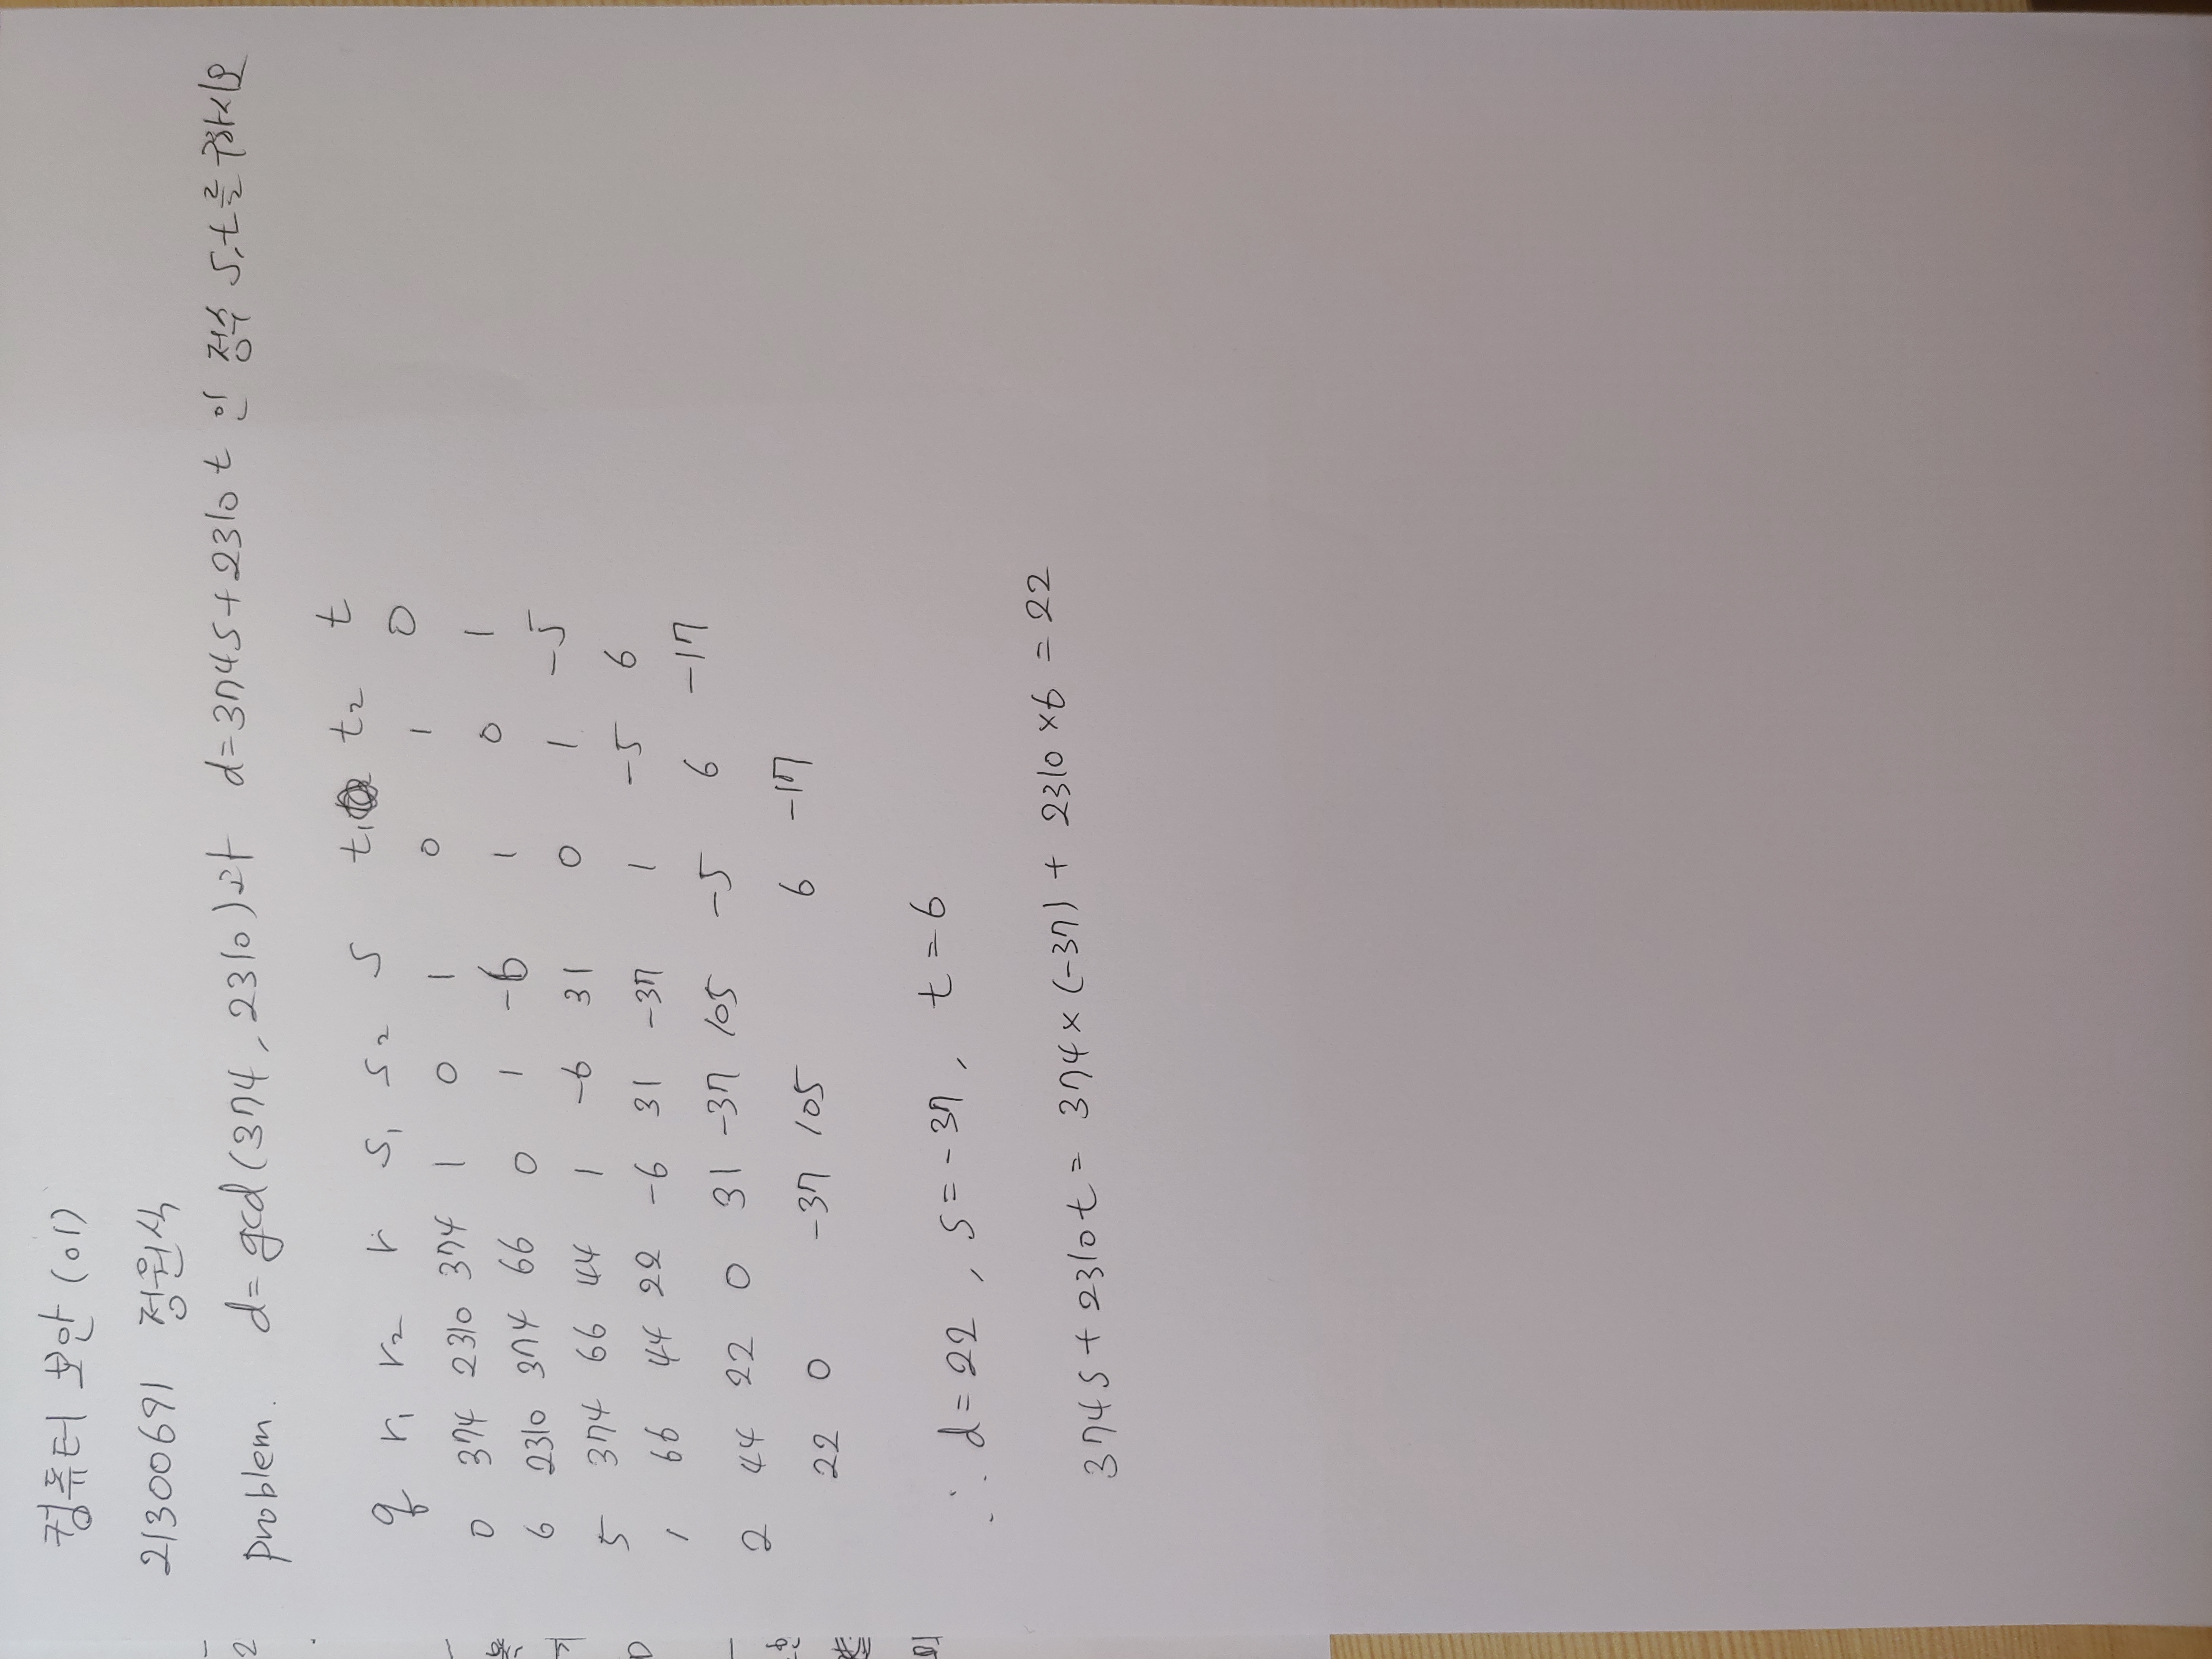 컴퓨터 보안 (01)
21300691 정원식
problem. d= gcd (374, 2310)과 d=374s+2310t 인 정수 s,t를 구하시오
q r₁ r₂ r s₁ s₂ s t₁ t₂ t
0 374 2310 374 1 0 1 0 1 0
6 2310 374 66 0 1 -6 1 0 1
5 374 66 44 1 -6 31 0 1 -5
1 66 44 22 -6 31 -37 1 -5 6
2 44 22 0 31 -37 105 -5 6 -17
22 0 -37 105 6 -17
∴ d=22, s=-37, t=6
374s+2310t= 374×(-37) + 2310×6 = 22